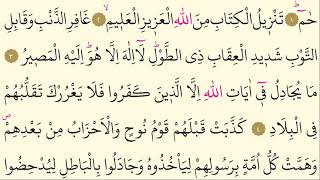 حٰمٓ ﴿١﴾ تَنْزٖيلُ الْكِتَابِ مِنَ اللّٰهِ الْعَزٖيزِ الْعَلٖيمِۙ ﴿٢﴾ غَافِرِ الذَّنْبِ وَقَابِلِ
التَّوْبِ شَدٖيدِ الْعِقَابِ ذِى الطَّوْلِؕ لَٓا اِلٰهَ اِلَّا هُوَؕ اِلَيْهِ الْمَصٖيرُ ﴿٣﴾
مَا يُجَادِلُ فٖٓى اٰيَاتِ اللّٰهِ اِلَّا الَّذٖينَ كَفَرُوا فَلَا يَغْرُرْكَ تَقَلُّبُهُمْ
فِى الْبِلَادِ ﴿٤﴾ كَذَّبَتْ قَبْلَهُمْ قَوْمُ نُوحٍ وَالْاَحْزَابُ مِنْ بَعْدِهِمْࣕ
وَهَمَّتْ كُلُّ اُمَّةٍ بِرَسُولِهِمْ لِيَأْخُذُوهُ وَجَادَلُوا بِالْبَاطِلِ لِيُدْحِضُوا